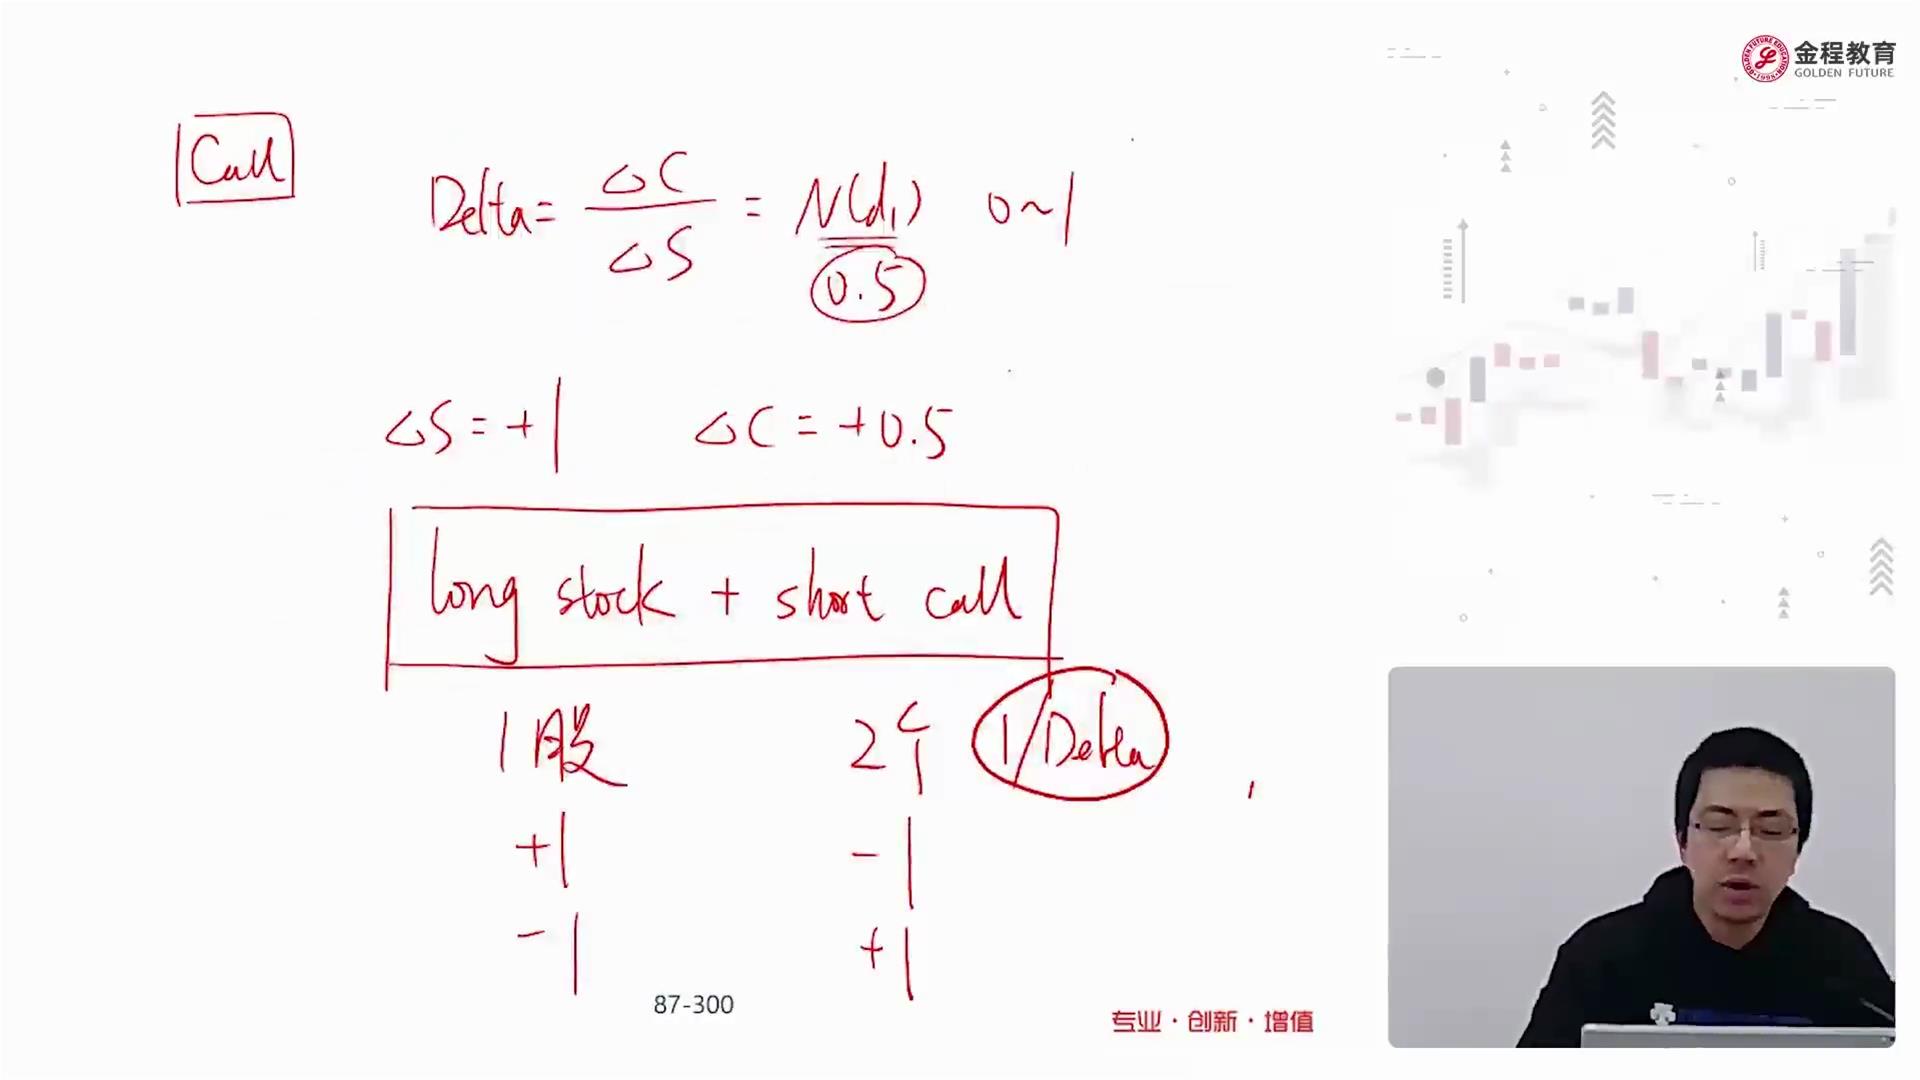 金程教育
GOLDEN FUTURE
Call
Delta = △C / △S = N(d₁) 0~1
0.5
△S = +1 △C = +0.5
long stock + short call
1股 2个 1/Delta
+1 -1
-1 +1
87-300
专业·创新·增值